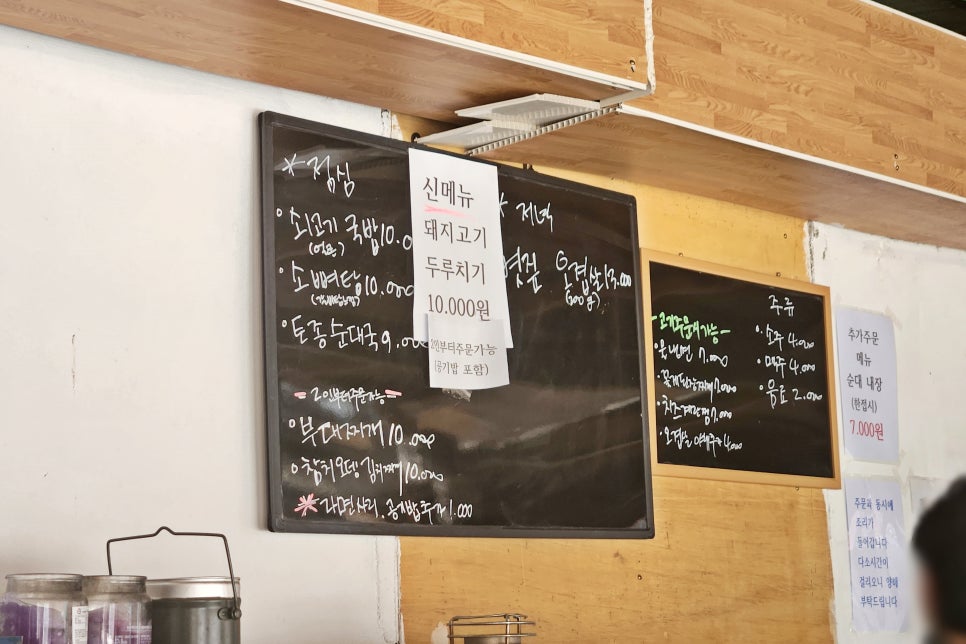 * 점심
쇠고기 국밥 10.0
(얼큰)
소뼈탕 10.000
토종순대국 9.000
- 2인부터주문가능 -
부대찌개 10.000
참치오뎅김치찌개 10.000
* 라면사리.공기밥추가 1.000
신메뉴
돼지고기
두루치기
10.000원
2인부터주문가능
(공기밥 포함)
* 저녁
오겹살 13.000
-고기주문때가능-
물냉면 7.000
7.000
치즈계란찜 7.000
4.000
주류
소주 4.000
맥주 4.000
음료 2.000
추가주문
메뉴
순대 내장
(한접시)
7.000원
주문과 동시에
조리가
들어갑니다
다소시간이
걸리오니 양해
부탁드립니다